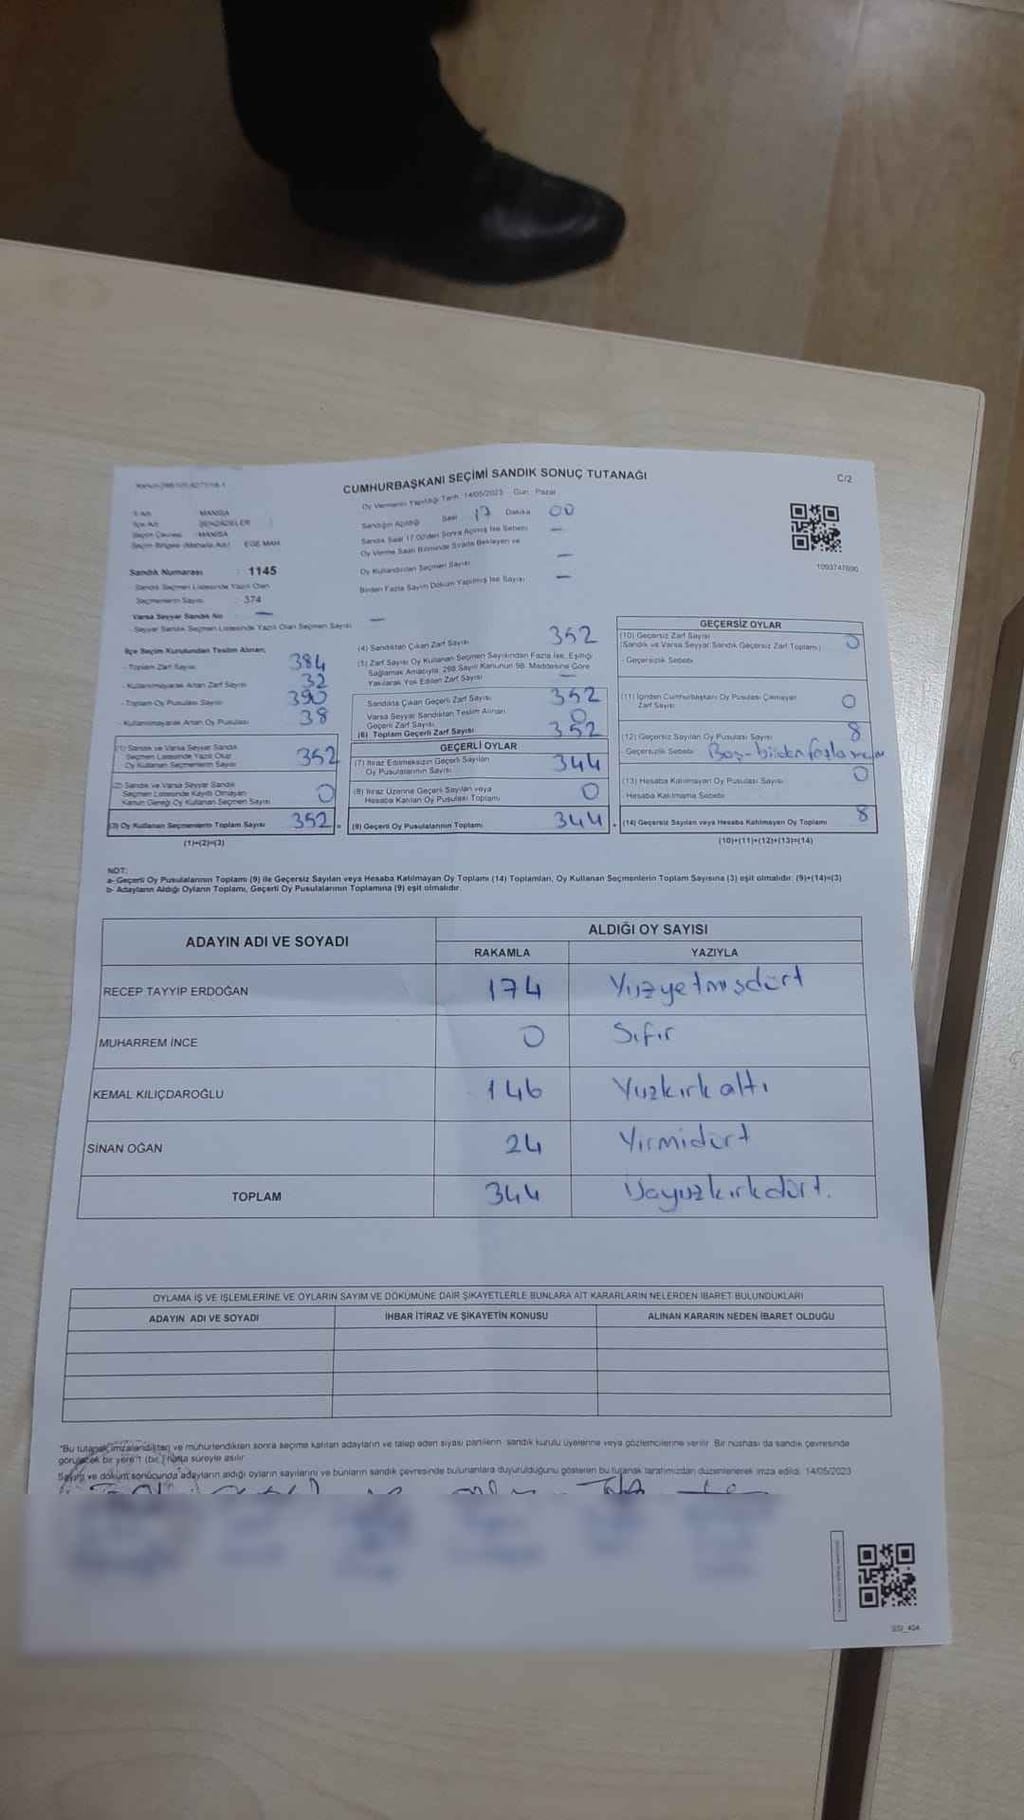 CUMHURBAŞKANI SEÇİMİ SANDIK SONUÇ TUTANAĞI
C/2
Oy Vermenin Yapıldığı Tarih: 14/05/2023 Gün: Pazar
Sandığın Açıldığı Saat 17 Dakika 00
Sandık Saat 17.00'den Sonra Açılmış İse Sebebi —
Oy Verme Saati Bitiminde Sırada Bekleyen ve
Oy Kullandırılan Seçmen Sayısı —
Birden Fazla Sayım Döküm Yapılmış İse Sayısı —
İl Adı : MANİSA
İlçe Adı : ŞEHZADELER
Seçim Çevresi : MANİSA
Seçim Bölgesi (Mahalle Adı) : EGE MAH.
Sandık Numarası : 1145
- Sandık Seçmen Listesinde Yazılı Olan
Seçmenlerin Sayısı : 374
Varsa Seyyar Sandık No —
- Seyyar Sandık Seçmen Listesinde Yazılı Olan Seçmen Sayısı —
1093747690
İlçe Seçim Kurulundan Teslim Alınan;
- Toplam Zarf Sayısı 384
- Kullanılmayarak Artan Zarf Sayısı 32
- Toplam Oy Pusulası Sayısı 390
- Kullanılmayarak Artan Oy Pusulası 38
(1) Sandık ve Varsa Seyyar Sandık
Seçmen Listesinde Yazılı Olup
Oy Kullanan Seçmenlerin Sayısı 352
(2) Sandık ve Varsa Seyyar Sandık
Seçmen Listesinde Kayıtlı Olmayan
Kanun Gereği Oy Kullanan Seçmen Sayısı 0
(3) Oy Kullanan Seçmenlerin Toplam Sayısı 352
(1)+(2)=(3)
(4) Sandıktan Çıkan Zarf Sayısı 352
(5) Zarf Sayısı Oy Kullanan Seçmen Sayısından Fazla İse, Eşitliği
Sağlamak Amacıyla; 298 Sayılı Kanunun 98. Maddesine Göre
Yakılarak Yok Edilen Zarf Sayısı —
Sandıkta Çıkan Geçerli Zarf Sayısı 352
Varsa Seyyar Sandıktan Teslim Alınan
Geçerli Zarf Sayısı 0
(6) Toplam Geçerli Zarf Sayısı 352
GEÇERLİ OYLAR
(7) İtiraz Edilmeksizin Geçerli Sayılan
Oy Pusulalarının Sayısı 344
(8) İtiraz Üzerine Geçerli Sayılan veya
Hesaba Katılan Oy Pusulası Toplamı 0
(9) Geçerli Oy Pusulalarının Toplamı 344
GEÇERSİZ OYLAR
(10) Geçersiz Zarf Sayısı
(Sandık ve Varsa Seyyar Sandık Geçersiz Zarf Toplamı) 0
- Geçersizlik Sebebi
(11) İçinden Cumhurbaşkanı Oy Pusulası Çıkmayan
Zarf Sayısı 0
(12) Geçersiz Sayılan Oy Pusulası Sayısı 8
- Geçersizlik Sebebi Boş-birden fazla
(13) Hesaba Katılmayan Oy Pusulası Sayısı 0
- Hesaba Katılmama Sebebi
(14) Geçersiz Sayılan veya Hesaba Katılmayan Oy Toplamı 8
(10)+(11)+(12)+(13)=(14)
NOT:
a- Geçerli Oy Pusulalarının Toplamı (9) ile Geçersiz Sayılan veya Hesaba Katılmayan Oy Toplamı (14) Toplamları, Oy Kullanan Seçmenlerin Toplam Sayısına (3) eşit olmalıdır. (9)+(14)=(3)
b- Adayların Aldığı Oyların Toplamı, Geçerli Oy Pusulalarının Toplamına (9) eşit olmalıdır.
ADAYIN ADI VE SOYADI
ALDIĞI OY SAYISI
RAKAMLA YAZIYLA
RECEP TAYYİP ERDOĞAN 174 Yüzyetmişdört
MUHARREM İNCE 0 Sıfır
KEMAL KILIÇDAROĞLU 146 Yüzkırkaltı
SİNAN OĞAN 24 Yirmidört
TOPLAM 344 Üçyüzkırkdört.
OYLAMA İŞ VE İŞLEMLERİNE VE OYLARIN SAYIM VE DÖKÜMÜNE DAİR ŞİKAYETLERLE BUNLARA AİT KARARLARIN NELERDEN İBARET BULUNDUKLARI
ADAYIN ADI VE SOYADI İHBAR İTİRAZ VE ŞİKAYETİN KONUSU ALINAN KARARIN NEDEN İBARET OLDUĞU
*Bu tutanak imzalandıktan ve mühürlendikten sonra seçime katılan adayların ve talep eden siyasi partilerin sandık kurulu üyelerine veya gözlemcilerine verilir. Bir nüshası da sandık çevresinde
görülecek bir yere 1 (bir) hafta süreyle asılır.
Sayım ve döküm sonucunda adayların aldığı oyların sayılarını ve bunların sandık çevresinde bulunanlara duyurulduğunu gösteren bu tutanak tarafımızdan düzenlenerek imza edildi. 14/05/2023